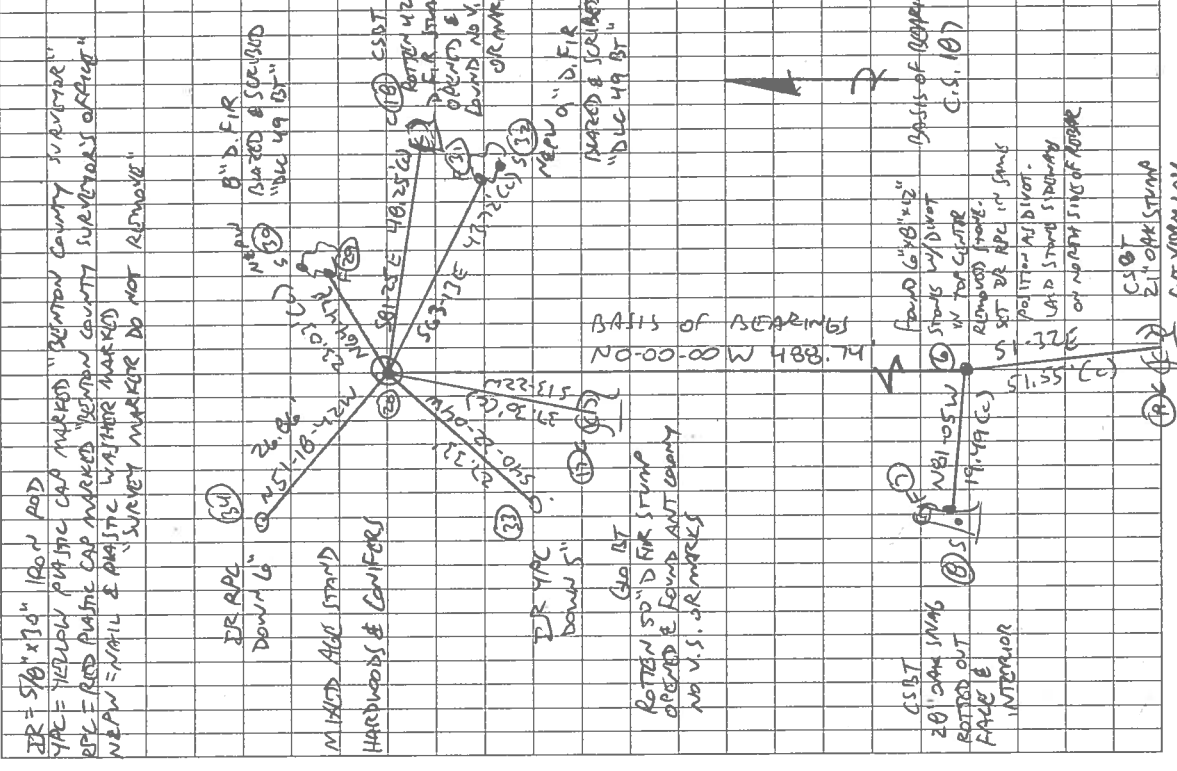 IR = 5/8"x30" IRON ROD
YPC = YELLOW PLASTIC CAP MARKED "BENTON COUNTY SURVEYOR"
RPC = RED PLASTIC CAP MARKED "BENTON COUNTY SURVEYOR'S OFFICE"
N&PW = NAIL & PLASTIC WASHER MARKED
"SURVEY MARKER DO NOT REMOVE"
34
IR RPC
DOWN 6"
N51-18-42W
26.86'
N&PW
S 30
8" D. FIR
BLAZED & SCRIBED
"DLC 49 BT"
29
MIXED AGE STAND
HARDWOODS & CONIFERS
20
S81-25E 48.25'(C)
18
CSBT
ROTTEN 42
D. FIR STUM
OPENED &
FOUND NO V.
OR MAR
31
S63-13E
47.72'(C)
S 32
N&PW
9" D. FIR
BLAZED & SCRIBED
"DLC 49 BT"
33
IR YPC
DOWN 5"
S13-22W
17
GLO BT
ROTTEN 50" D FIR STUMP
OPENED & FOUND ANT COLONY
NO V.S. OR MARKS
BASIS OF BEARINGS
N0-00-00W 488.74'
BASIS OF BEARI
C.S.
6
FOUND 6"x8"x12"
STONE W/DIVOT
IN TOP CENTER
REMOVED STONE.
SET IR RPC IN SAME
POSITION AS DIVOT.
LAID STONE SIDEWAY
ON NORTH SIDE OF REBAR
7
N81-05W
19.49'(C)
8
S
CSBT
28" OAK SNAG
ROTTED OUT
FACE &
INTERIOR
S1-32E
51.55'(C)
CSBT
21" OAK STUMP